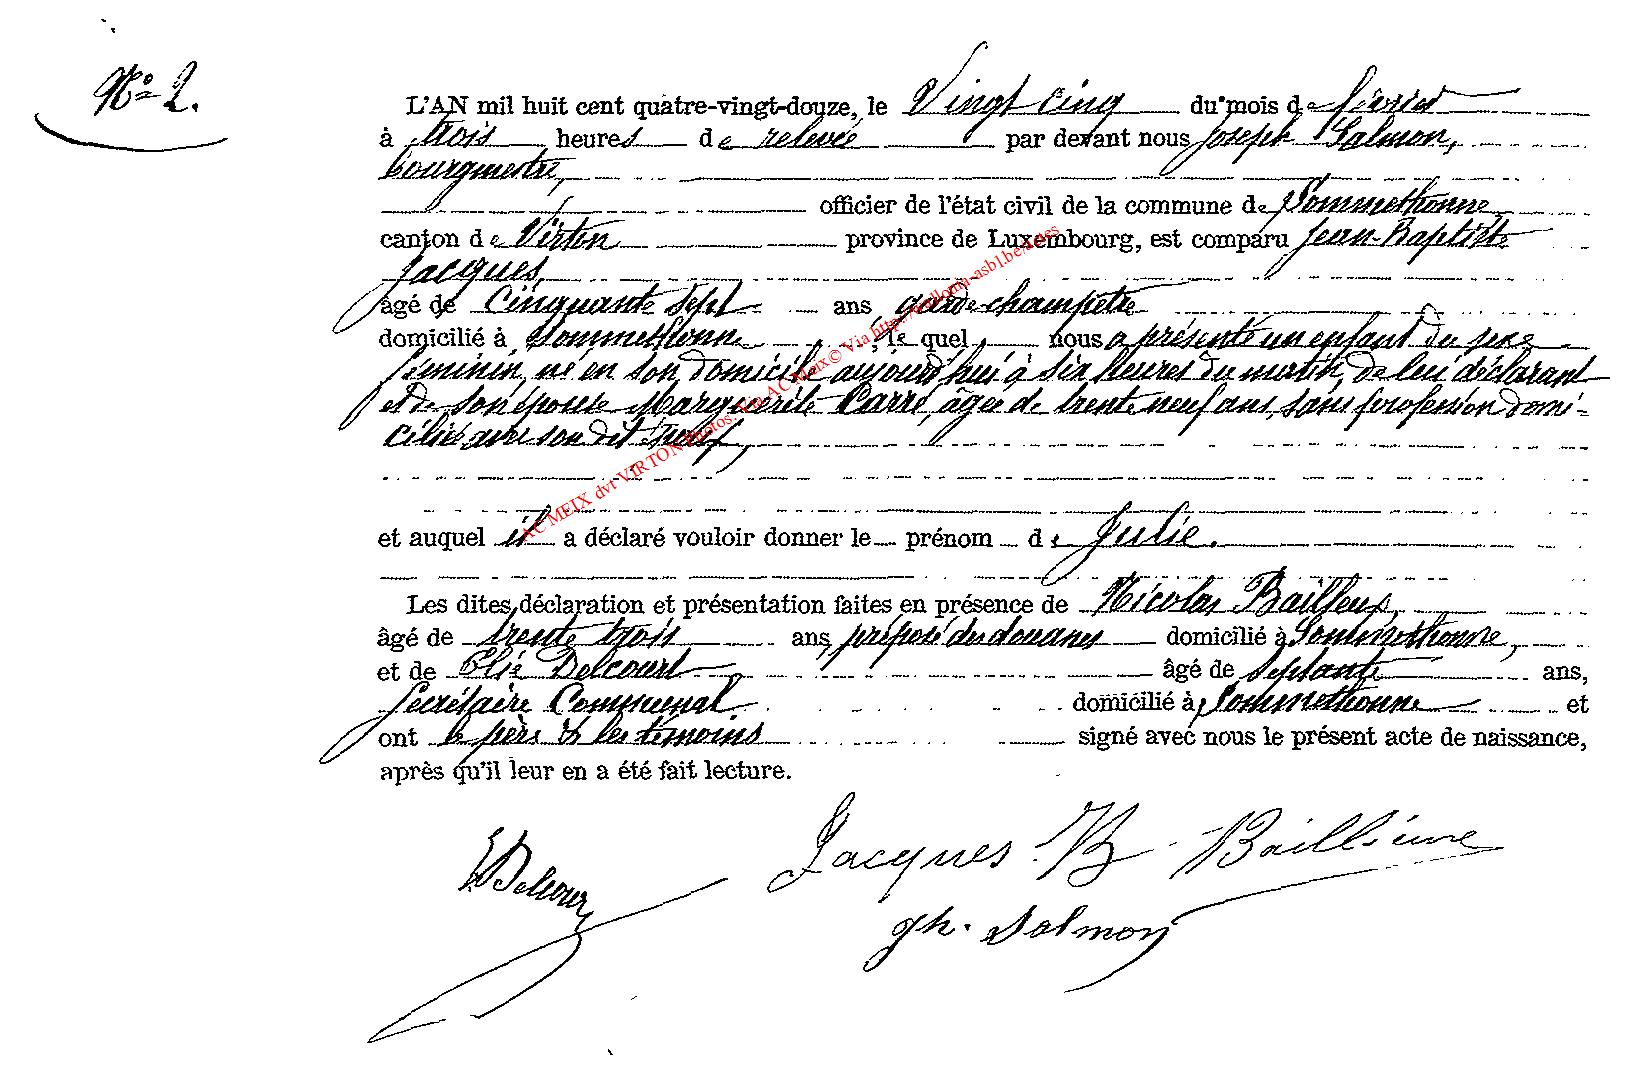 N° 2.
L'AN mil huit cent quatre-vingt-douze, le Vingt cinq du mois de février
à trois heures de relevée par devant nous Joseph Salmon,
bourgmestre,
officier de l'état civil de la commune de Sommethonne
canton de Virton province de Luxembourg, est comparu Jean-Baptiste
Jacques,
âgé de Cinquante sept ans garde-champêtre
domicilié à Sommethonne, le quel nous a présenté un enfant du sexe
féminin, né en son domicile aujourd'hui à six heures du matin, de lui déclarant
et de son épouse Marguerite Carré, âgée de trente neuf ans, sans profession domi-
ciliée avec son dit époux,
et auquel il a déclaré vouloir donner le prénom de Julie.
Les dites déclaration et présentation faites en présence de Nicolas Bailleux,
âgé de trente trois ans, préposé des douanes domicilié à Sommethonne,
et de Elie Delcourt âgé de septante ans,
Secrétaire Communal domicilié à Sommethonne et
ont le père & les témoins signé avec nous le présent acte de naissance,
après qu'il leur en a été fait lecture.
AC MEIX dvt VIRTON Photos Via AC Meix© Via
Jacques JB
EDelcour
Salmon